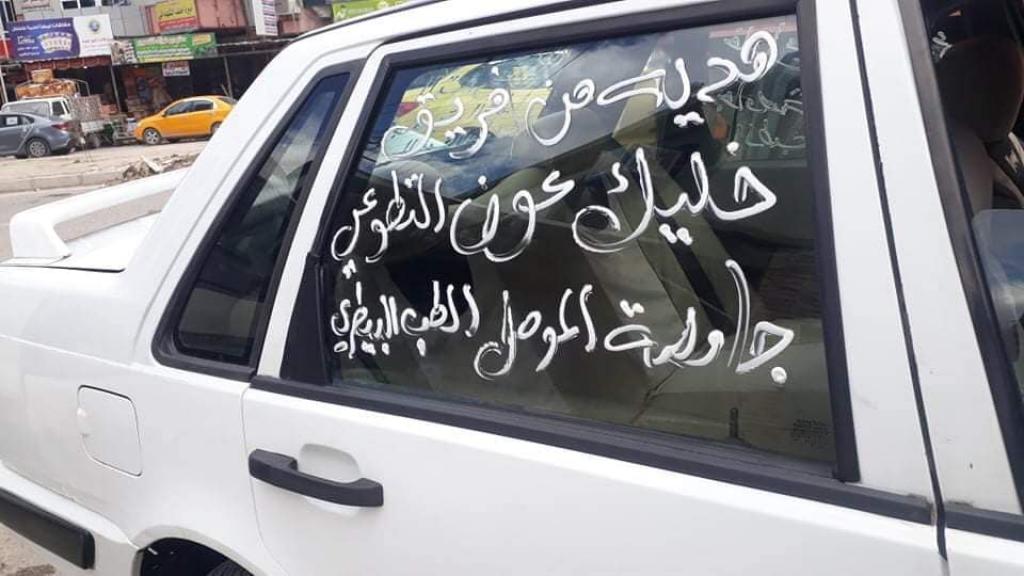 هدية من فريق
خليك عون التطوعي
جامعة الموصل الطب البيطري